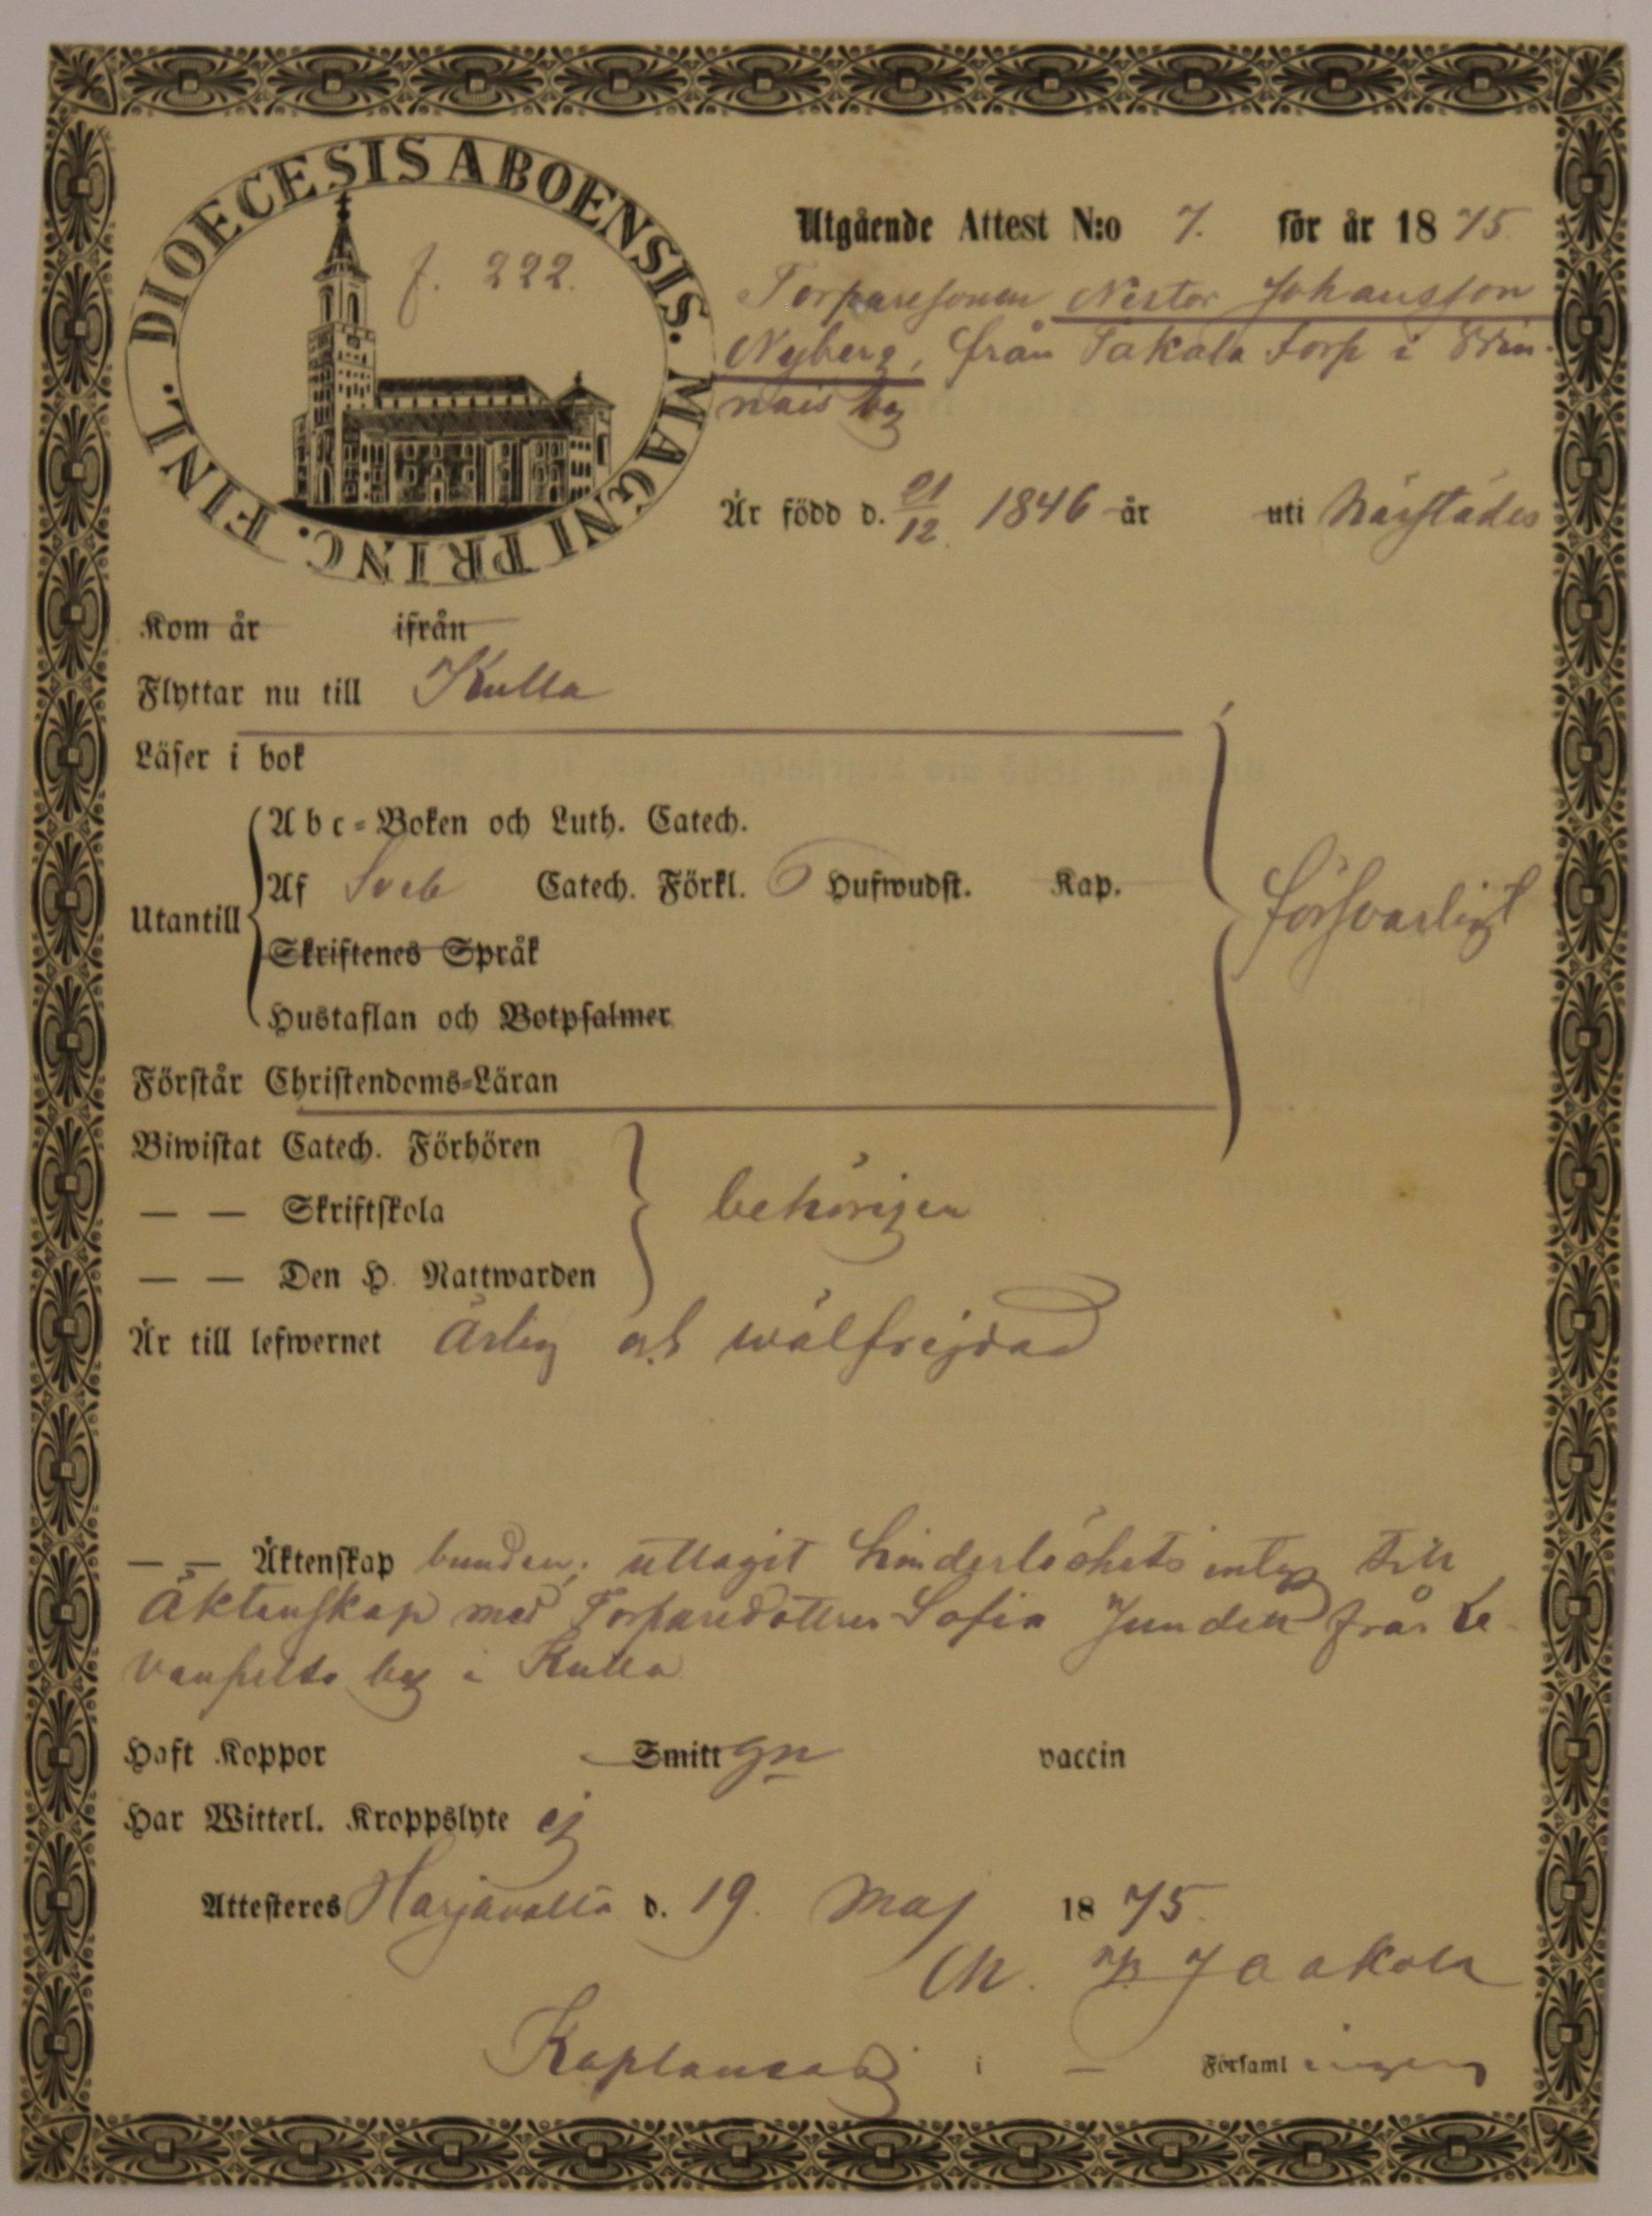 DIOECESIS ABOENSIS. MAGNI PRINC. FINL.
f. 222.
Utgående Attest N:o 7. för år 1875.
Torparesonen Nestor Johansson
Nyberg, från Takala torp i
nais by
Är född d. 21/12 1846 år uti härstädes
Kom år ifrån
Flyttar nu till Kulla
Läser i bok
Abc-Boken och Luth. Catech.
Af Sveb Catech. Förkl. Hufwudst. Kap.
Utantill
försvarligt
Skriftenes Språk
Hustaflan och Botpsalmer
Förstår Christendoms-Läran
Biwistat Catech. Förhören
— — Skriftskola behörigen
— — Den H. Nattwarden
Är till lefwernet ärlig och wälfrejdad
— — Äktenskap bunden; uttagit hinderlöshets intyg till
Äktenskap med Torparedottren Sofia från Le-
by i Kulla
Haft Koppor Smitt gn vaccin
Har Witterl. Kroppslyte ej
Attesteres Harjavalta d. 19. Maj 1875.
Jaakola
Kaplansadj i — Församlingen